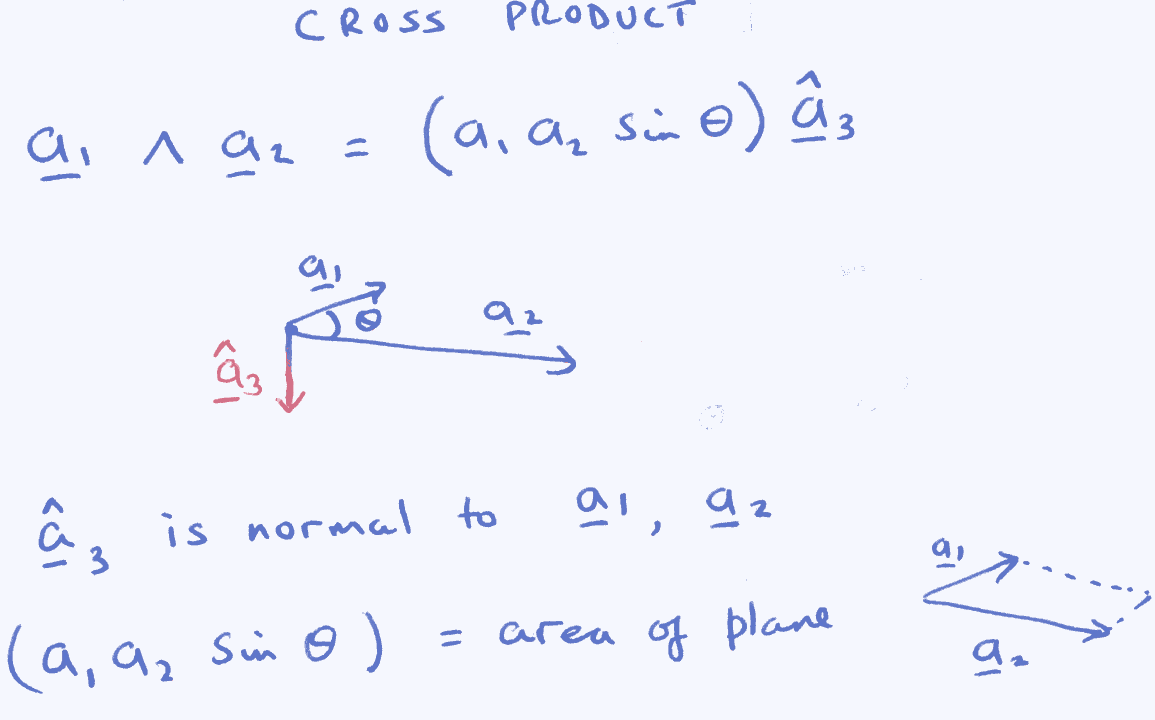 CROSS PRODUCT
a̲₁ ∧ a̲₂ = (a₁ a₂ sin θ) â̲₃
a̲₁
θ
a̲₂
â̲₃
â̲₃ is normal to a̲₁, a̲₂
a̲₁
(a₁ a₂ sin θ) = area of plane
a̲₂